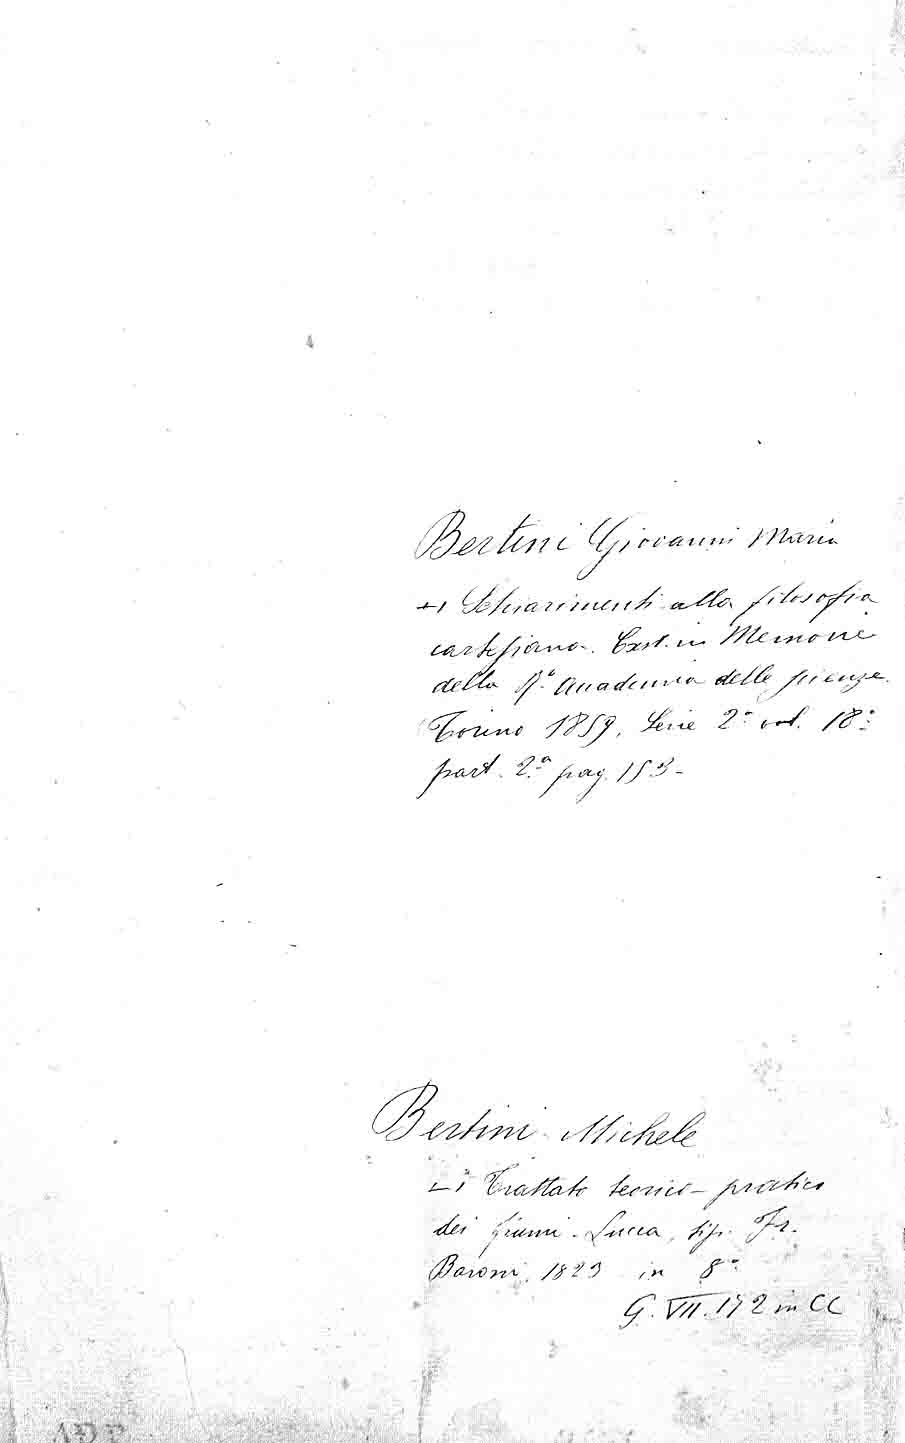 Bertini Giovanni Maria
Schiarimenti alla filosofia
cartesiana. Est. in Memorie
della R.a Accademia delle scienze.
Torino 1859, Serie 2a vol. 18o
part. 2.a pag. 153 -
Bertini Michele
Trattato teorico-pratico
dei fiumi. Lucca, tip. Fr.
Baroni, 1823 in 8o
G. VII. 172 in CC